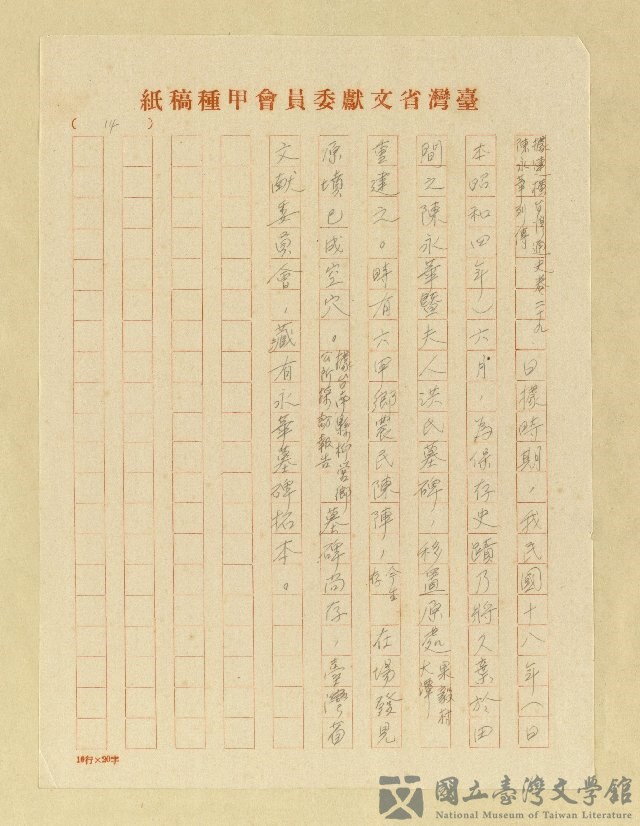 臺灣省文獻委員會甲種稿紙
( 14 )
據連橫臺灣通史卷二十九
陳永華列傳
日據時期,我民國十八年(日
本昭和四年)六月,為保存史蹟乃將久棄於田
間之陳永華暨夫人洪氏墓碑,移置原處果毅村
大潭
重建之。時有六甲鄉農民陳陣,今尚
存
在場發見
原墳已成空穴。據台南縣柳營鄉
公所採訪報告
墓碑尚存,臺灣省
文獻委員會,藏有永華墓碑拓本。
10行×20字
國立臺灣文學館
National Museum of Taiwan Literature